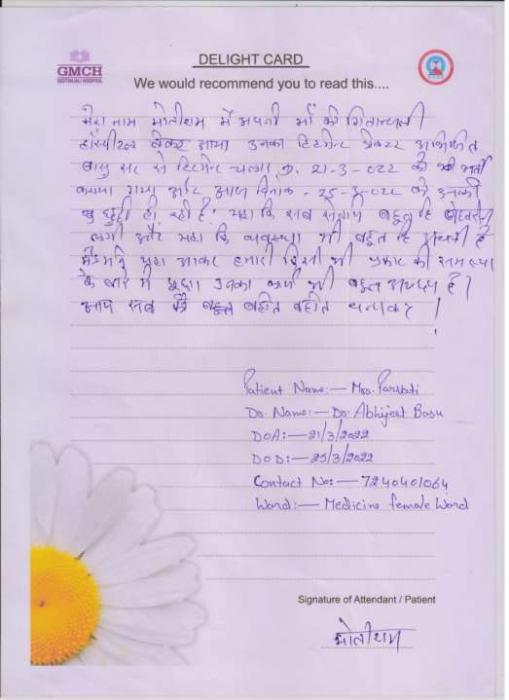 GMCH
DELIGHT CARD
We would recommend you to read this....
मेरा नाम मोतीराम में अपनी माँ को गितान्जली
हास्पीटल लेकर आया उनका टिटमेन्ट डॉक्टर अभिजीत
बासु सर से टिटमेन्ट चला D. 21-3-022 को भर्ती
कराया गया और आज दिनांक - 25-3-022 को उनकी
छुट्टी हो रही है. यहा कि सब बहुत हि
लगी और यहा कि व्यवस्था भी बहुत हि अच्छी है
आकर हमारी किसी भी प्रकार की समस्या
के बारे में पूछा उनका भी बहुत
आप सब को बहुत बहोत बहोत धन्यवाद
Patient Name:— Mrs. Parvati
Dr. Name:— Dr. Abhijeet Basu
DOA:— 21/3/2022
DOD:— 25/3/2022
Contact No:— 7240401064
Word:— Medicine female Word
Signature of Attendant / Patient
मोतीराम